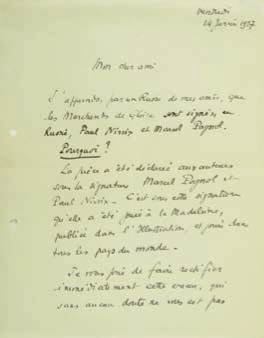 Vendredi
14 Janvier 1927
Mon cher ami
J'apprends, par un Russe de mes amis, que
les Marchands de Gloire sont signés, en
Russie, Paul Nivoix et Marcel Pagnol.
Pourquoi ?
La pièce a été déclarée aux auteurs
sous la signature Marcel Pagnol et
Paul Nivoix. C'est sous cette signature
qu'elle a été jouée à la Madeleine,
publiée dans l'Illustration et jouée dans
tous les pays du monde.
Je vous prie de faire rectifier
immédiatement cette erreur, qui
sans aucun doute ne vous est pas